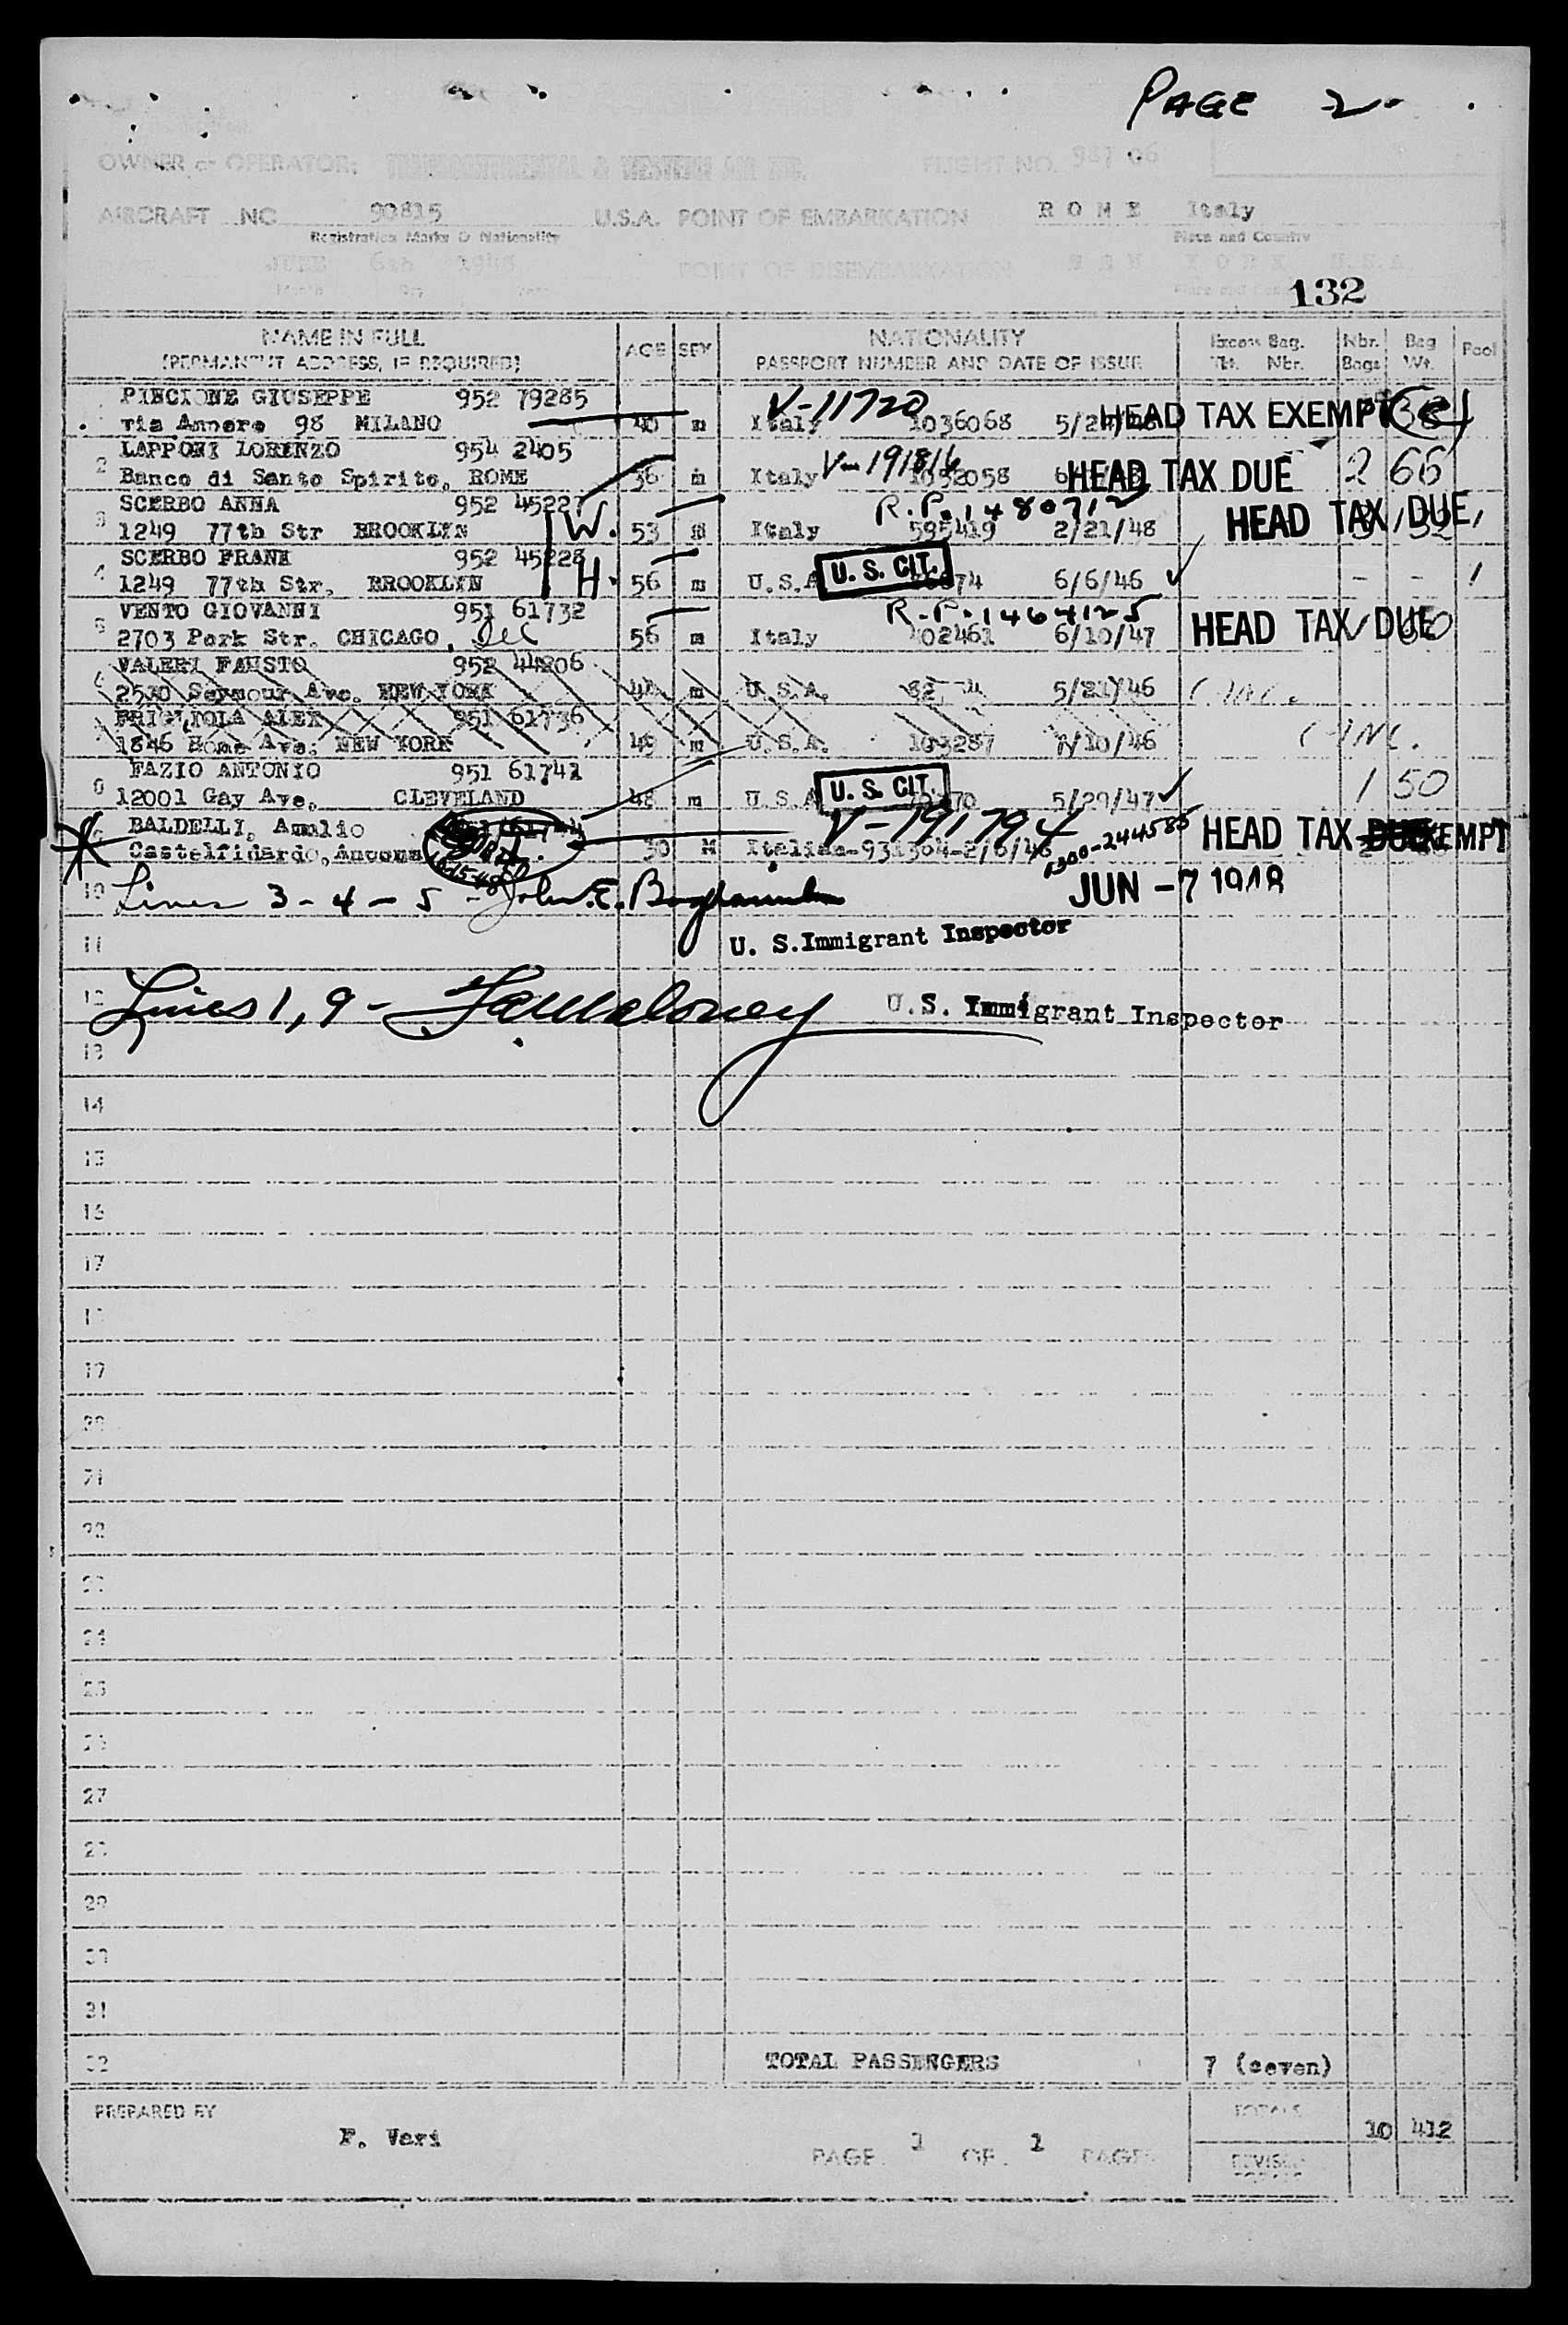 PAGE 2
OWNER or OPERATOR: TRANSCONTINENTAL & WESTERN AIR INC. FLIGHT NO. 987 06
AIRCRAFT NC 90815 U.S.A. POINT OF EMBARKATION R O M E Italy
Registration Marks & Nationality Place and Country
JUNE 6th 1948 POINT OF DISEMBARKATION N E W Y O R K U.S.A.
Month Day Year
132
NAME IN FULL AGE SEX NATIONALITY Excess Bag. Nbr. Bag Pool
(PERMANENT ADDRESS, IF REQUIRED) PASSPORT NUMBER AND DATE OF ISSUE Wt. Nbr. Bags Wt.
PINCIONE GIUSEPPE 952 79285 V-11720
via Annero 98 MILANO 40 m Italy 1036068 HEAD TAX EXEMPT
2 LAPPONI LORENZO 954 2405 V-191816
Banco di Santo Spirito, ROME 36 m Italy HEAD TAX DUE 2 66
3 SCERBO ANNA 952 45227 W. R.P. 1480712
1249 77th Str BROOKLYN 53 Italy 595419 2/21/48 HEAD TAX DUE
4 SCERBO FRANK 952 45228 H. U. S. CIT.
1249 77th Str. BROOKLYN 56 m U.S.A 6/6/46 - - 1
5 VENTO GIOVANNI 951 61732 R.P. 1464125
2703 Park Str. CHICAGO, Ill 56 m Italy 402461 6/10/47 HEAD TAX DUE
VALERI FAUSTO 952 44206
2530 Seymour Ave. NEW YORK 44 m U.S.A. 5/21/46 CANC.
FRIGLIOLA ALEX 951 61736
1846 Home Ave. NEW YORK 49 m U.S.A. 103287 7/10/46 CANC.
FAZIO ANTONIO 951 61741 U. S. CIT.
12001 Gay Ave. CLEVELAND 48 m U.S.A 5/29/47 1 50
BALDELLI, Amalio V-191794 1300-244585 HEAD TAX EXEMPT
Castelfidardo, Ancona 30 M Italian-931304-2/6/48
JUN -7 1948
10 Lines 3-4-5 - John E.
11 U. S. Immigrant Inspector
12 Lines 1, 9 - Maloney U. S. Immigrant Inspector
13
14
15
16
17
18
19
20
21
22
23
24
25
26
27
28
29
30
31
32 TOTAL PASSENGERS 7 (seven)
PREPARED BY F. Vari TOTALS 10 412
PAGE 1 OF 1 PAGES REVISED TOTALS